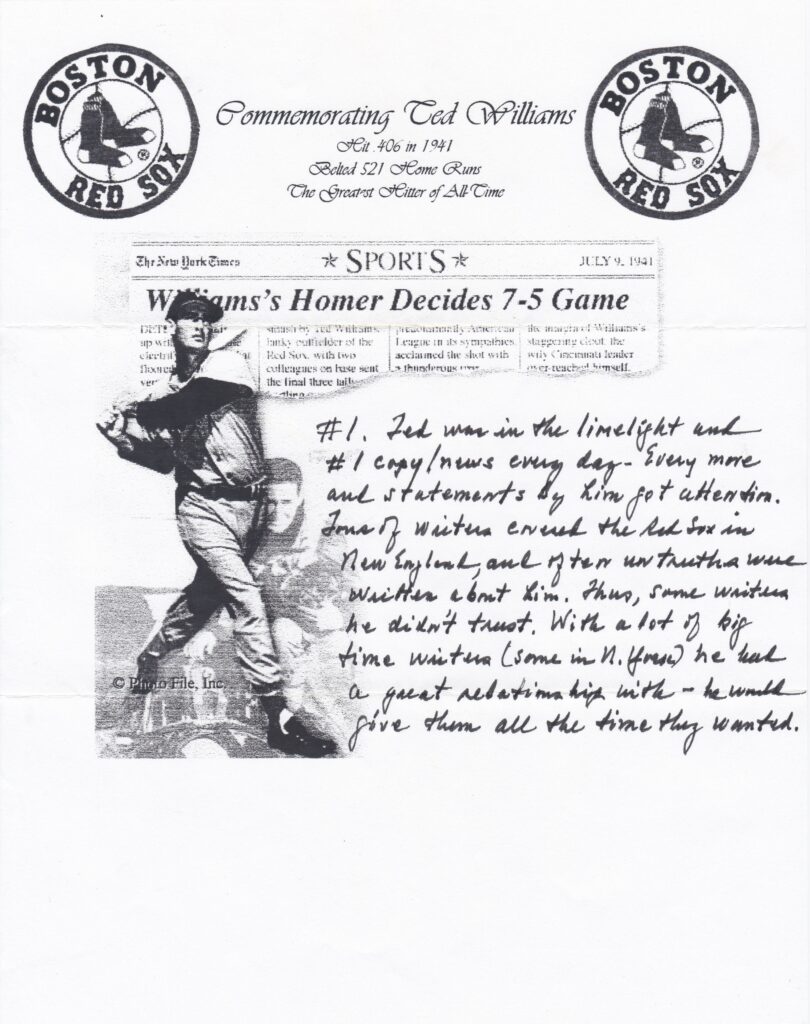 BOSTON
RED SOX
Commemorating Ted Williams
Hit .406 in 1941
Belted 521 Home Runs
The Greatest Hitter of All-Time
BOSTON
RED SOX
The New York Times
SPORTS
JULY 9, 1941
Williams's Homer Decides 7-5 Game
up
smash by Ted Williams,
lanky outfielder of the
Red Sox, with two
colleagues on base sent
the final three
predominantly American
League in its sympathies
acclaimed the shot with
a thunderous
the margin of Williams's
staggering clout, the
wily Cincinnati leader
over-reached himself.
#1. Ted was in the limelight and
#1 copy/news every day - Every move
and statements by him got attention.
Tons of writers covered the Red Sox in
New England, and often untruths were
written about him. Thus, some writers
he didn't trust. With a lot of big
time writers (some in N.) he had
a great relationship with - he would
give them all the time they wanted.
© Photo File, Inc.